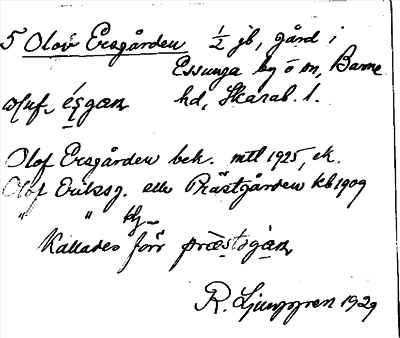 5 Olov Ersgården 1/2 jb, gård i
Essunga by o sn, Barne
hd, Skarab. l.
Olof Ersgården bek. mtl 1925, ek.
Olof Eriksg. eller Prästgården kb 1909
" "
Kallades förr
R. Ljunggren 1929